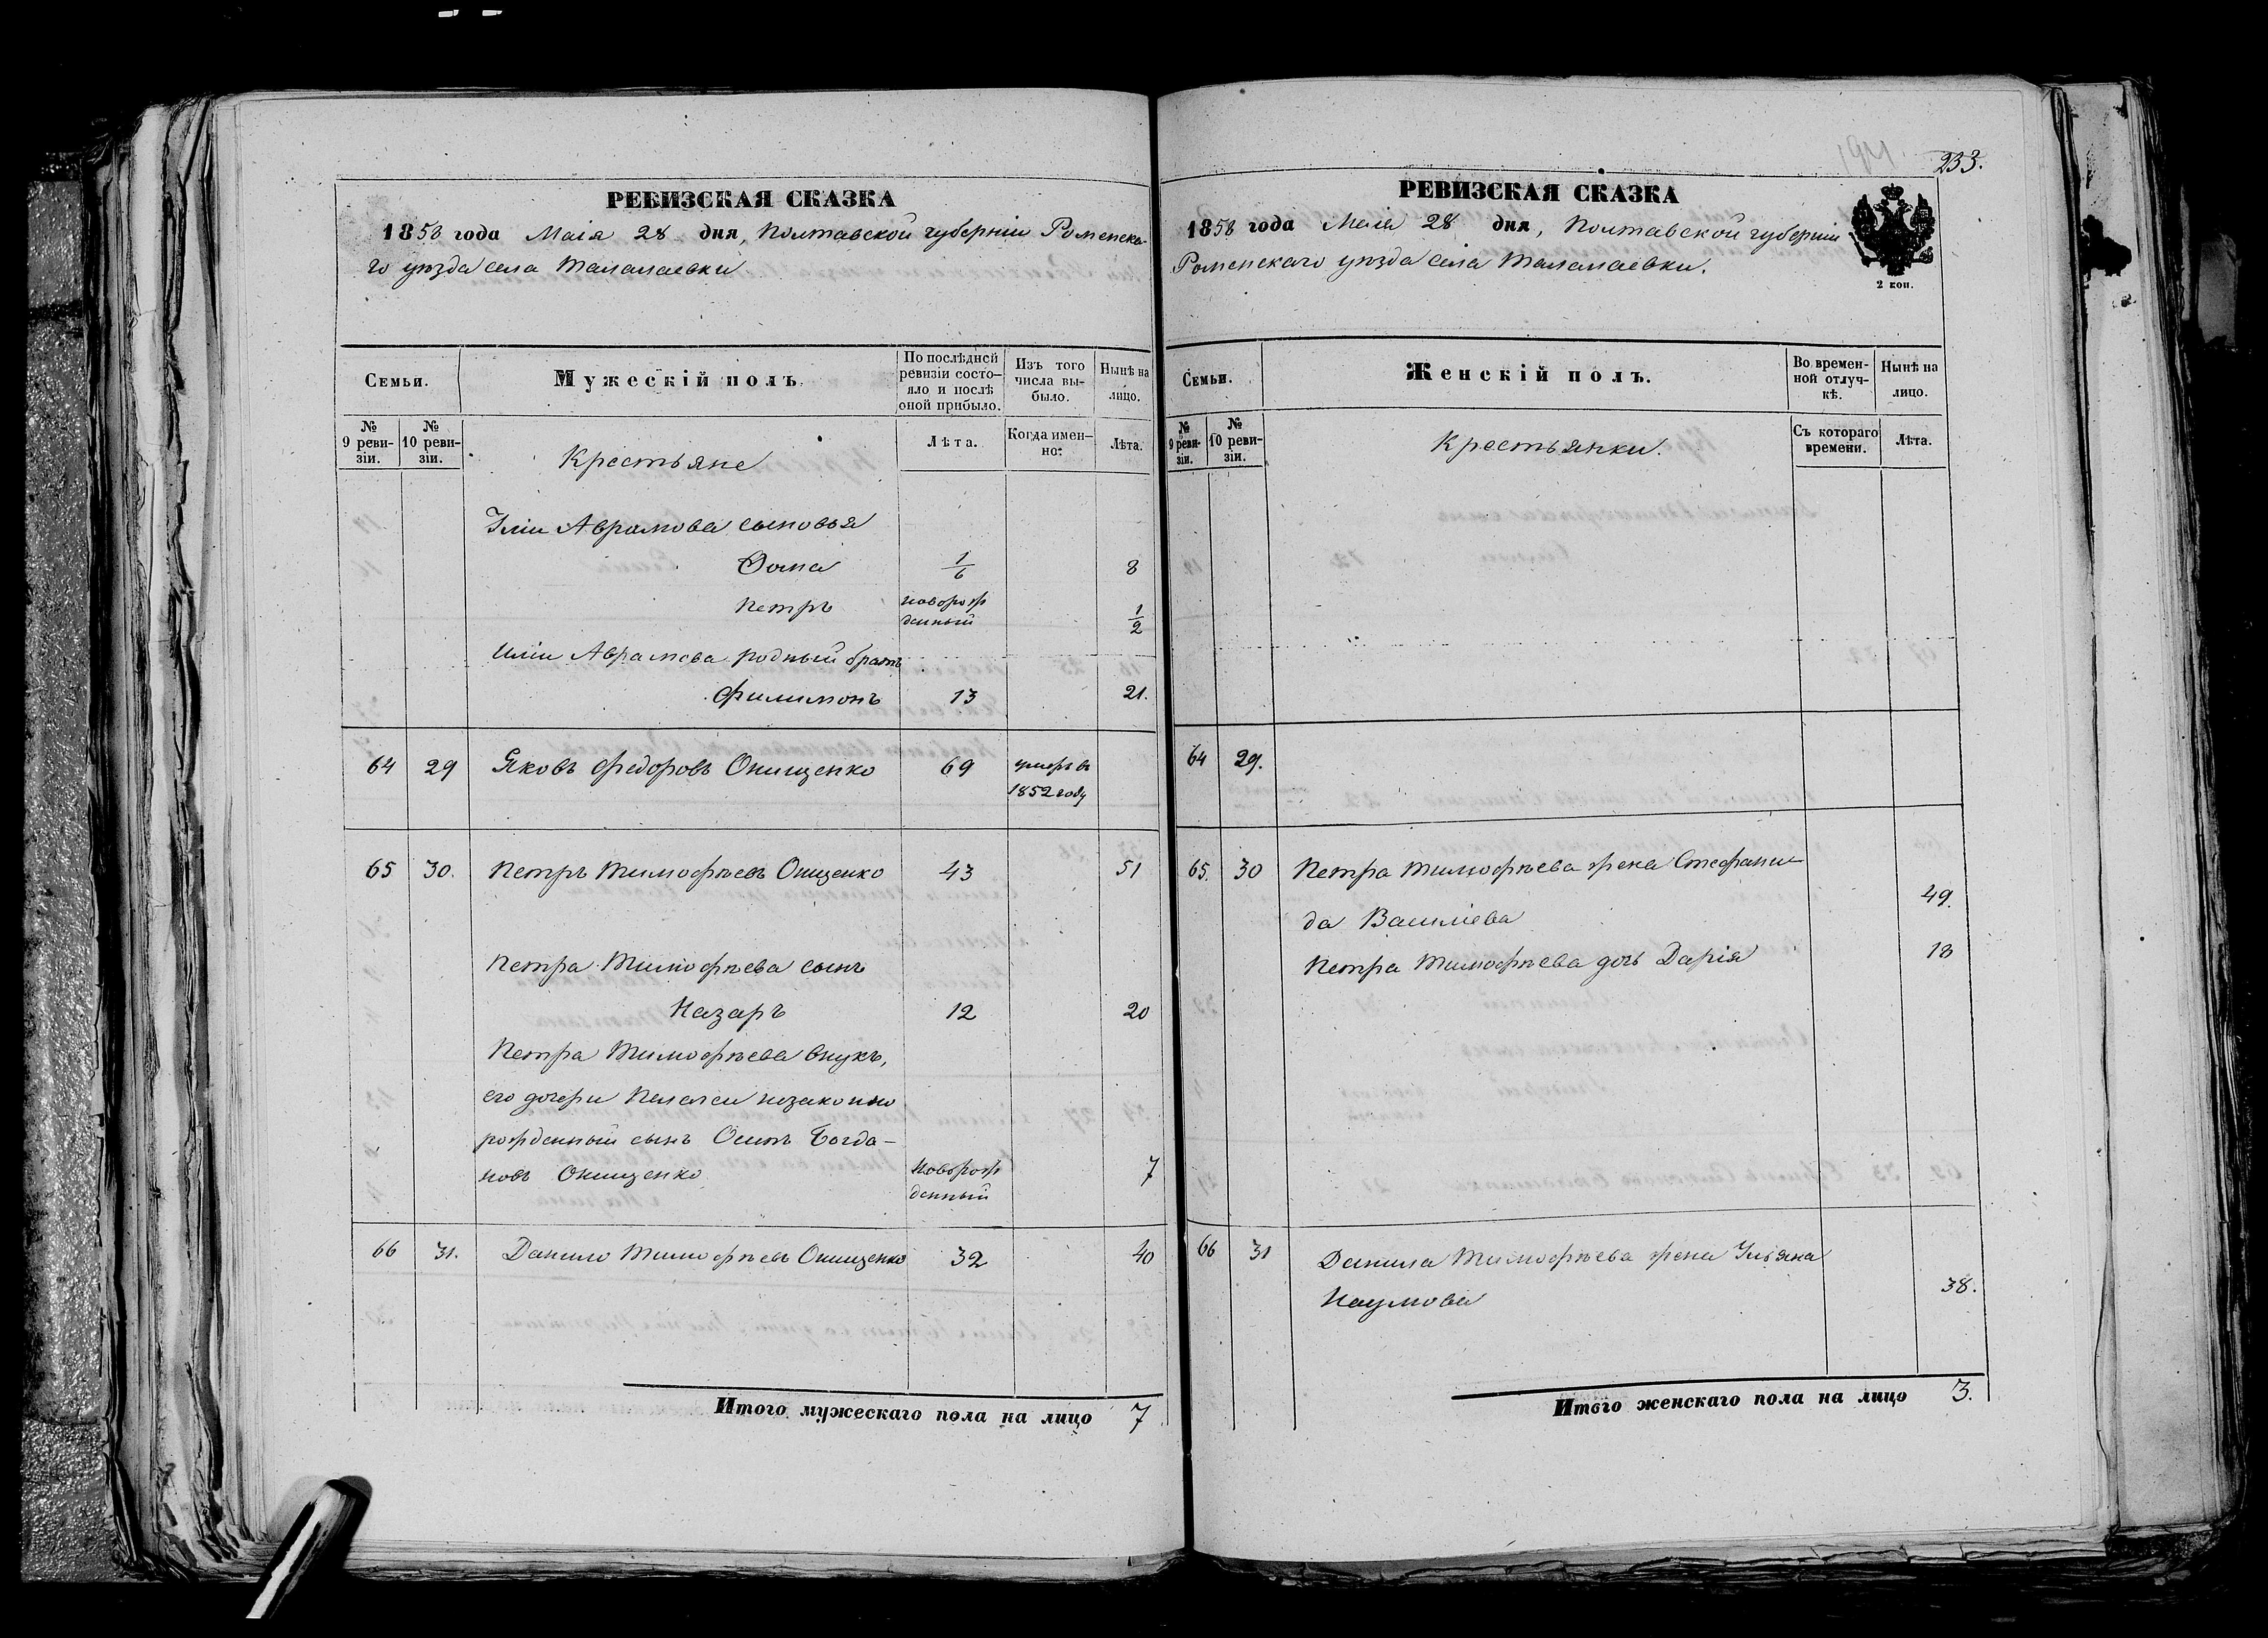 233.
РЕВИЗСКАЯ СКАЗКА
1858 года Маія 28 дня, Полтавской губерніи Роменска-
го уѣзда села Талалаевки
Семьи.
Мужескій полъ.
По послѣдней ревизіи состо-яло и послѣ оной прибыло.
Изъ того числа вы-было.
Нынѣ на лицо.
№ 9 реви-зіи.
№ 10 реви-зіи.
Крестьяне
Лѣта.
Когда имен-но:
Лѣта.
Иліи Аврамова сыновья
Фома 1/6 8
Петръ новорож денный 1/2
Иліи Аврамова родный братъ
Филимонъ 13 21.
64 29 Яковъ Федоровъ Онищенко 69 умеръ въ 1852 году
65 30. Петръ Тимофѣевъ Онищенко 43 51
Петра Тимофѣева сынъ
Назаръ 12 20
Петра Тимофѣева внукъ,
его дочери Пелагеи незаконно
рожденный сынъ Осипъ Богда-
новъ Онищенко новорож денный 7
66 31. Данило Тимофѣевъ Онищенко 32 40
Итого мужескаго пола на лицо 7
РЕВИЗСКАЯ СКАЗКА
1858 года Маія 28 дня, Полтавской губерніи
Роменскаго уѣзда села Талалаевки.
2 коп.
Семьи.
Женскій полъ.
Во времен-ной отлуч-кѣ.
Нынѣ на лицо.
№ 9 реви-зіи.
№ 10 реви-зіи.
Крестьянки.
Съ котораго времени.
Лѣта.
64 29.
65. 30 Петра Тимофѣева жена Стефани-
да Василіева 49.
Петра Тимофѣева дочь Дарія 18
66 31 Данила Тимофѣева жена Ульяна
Наумова 38.
Итого женскаго пола на лицо 3.